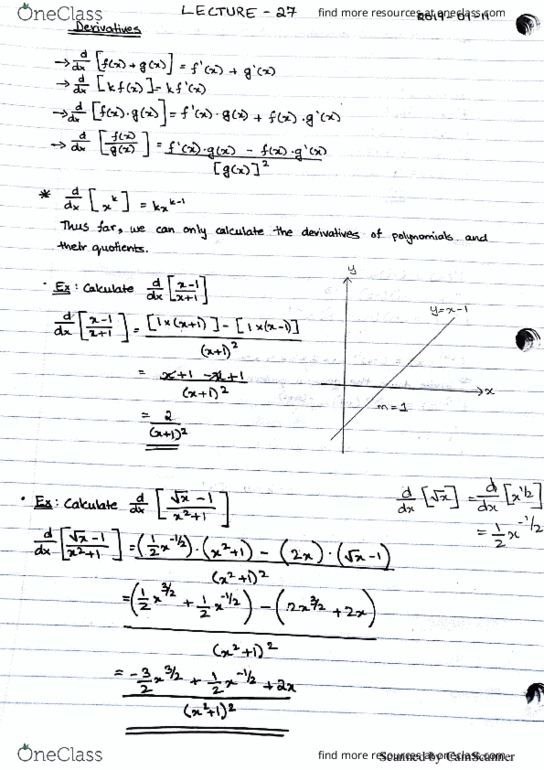 OneClass
LECTURE - 27
find more resources at oneclass.com
Derivatives
→ d/dx [f(x) + g(x)] = f'(x) + g'(x)
→ d/dx [k f(x)] = k f'(x)
→ d/dx [f(x) · g(x)] = f'(x) · g(x) + f(x) · g'(x)
→ d/dx [f(x)/g(x)] = (f'(x) · g(x) - f(x) · g'(x))/[g(x)]²
* d/dx [x^k] = kx^(k-1)
Thus far, we can only calculate the derivatives of polynomials and
their quotients.
· Ex: Calculate d/dx [(x-1)/(x+1)]
d/dx [(x-1)/(x+1)] = ([1×(x+1)] - [1×(x-1)])/(x+1)²
= (x+1 -x+1)/(x+1)²
= 2/(x+1)²
y
y=x-1
x
m=1
· Ex: Calculate d/dx [(√x - 1)/(x²+1)]
d/dx [√x] = d/dx [x^(1/2)]
= 1/2 x^(-1/2)
d/dx [(√x-1)/(x²+1)] = ((1/2 x^(-1/2)) · (x²+1) - (2x) · (√x-1))/(x²+1)²
= ((1/2 x^(3/2) + 1/2 x^(-1/2)) - (2x^(3/2) + 2x))/(x²+1)²
= (-3/2 x^(3/2) + 1/2 x^(-1/2) + 2x)/(x²+1)²
OneClass
find more resources at oneclass.com
Scanned by CamScanner